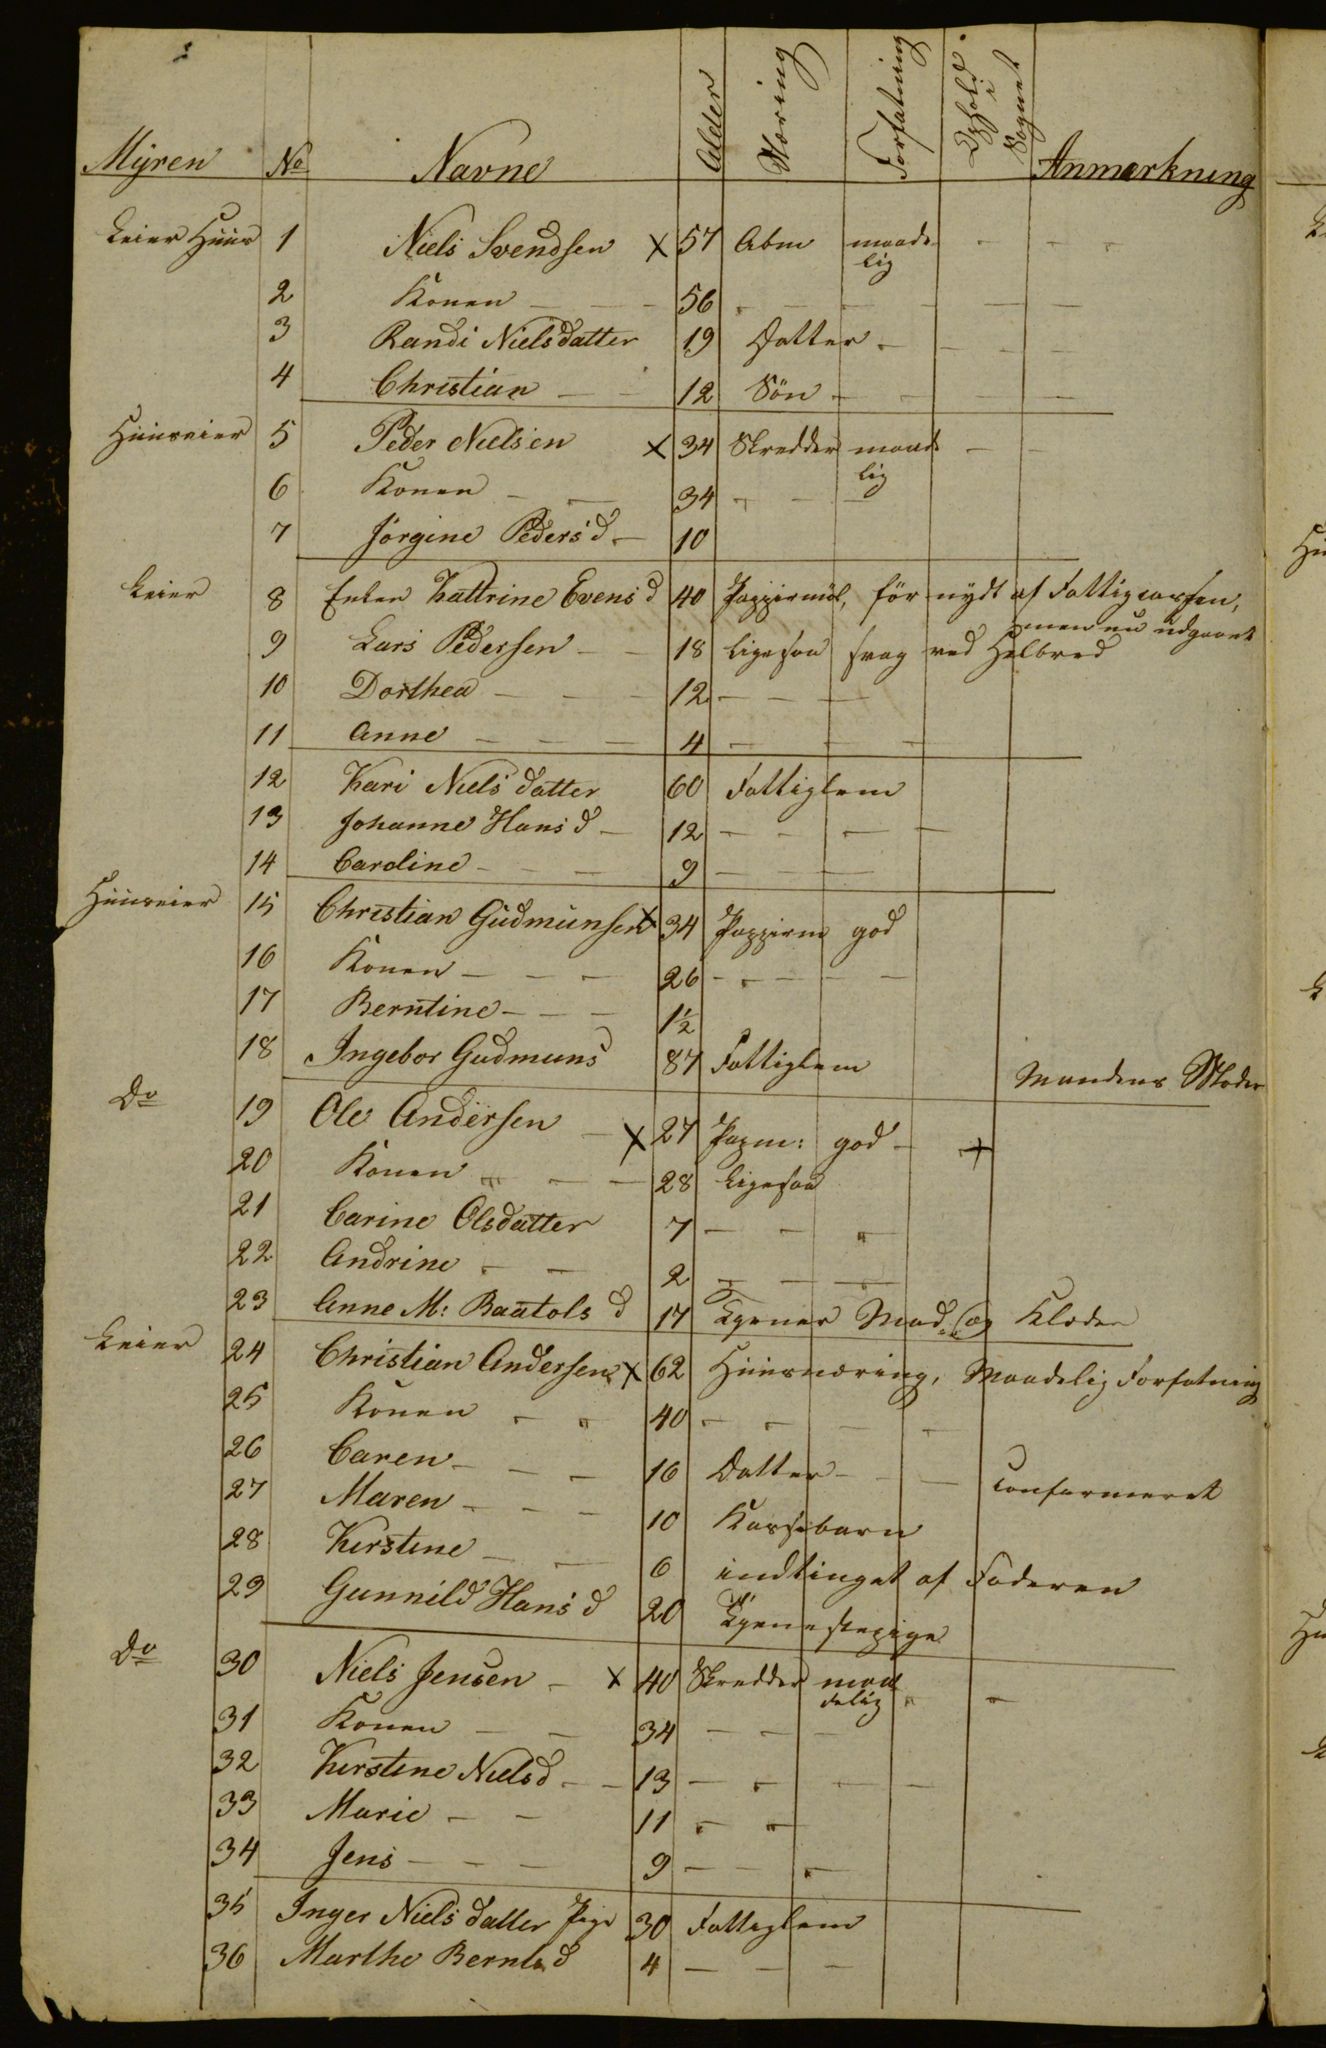 Myren No Navne Alder Næring Forfatning Ophold i Sognet Anmærkning
Leier Huus 1 Niels Svendsen x 57 Abm maade
lig
2 Konen 56
3 Randi Nielsdatter 19 Datter
4 Christian 12 Sön
Huuseier 5 Peder Nielsen x 34 Skredder maade
lig
6 Konen 34
7 Jörgine Peders d 10
Leier 8 Enken Kattrine Evens d 40 Pappirmöl, för nydt af Fattigcassen,
men nu udgaaet
9 Lars Pedersen 18 ligesaa svag ved Helbred
10 Dorthea 12
11 Anne 4
12 Kari Niels datter 60 Fattiglem
13 Johanne Hans d 12
14 Caroline 9
Huuseier 15 Christian Gudmunsen x 34 Pappirm god
16 Konen 26
17 Berntine 1½
18 Ingebor Gudmuns 87 Fattiglem Mandens Moder
Do 19 Ole Andersen x 27 Papm: god +
20 Konen 28 Ligesaa
21 Carine Olsdatter 7
22 Andrine 2
23 Anne M: Baatols d 17 tjener Mad og Klæder
Leier 24 Christian Andersen x 62 Huusnæring, Maadelig Forfatning
25 Konen 40
26 Caren 16 Datter confirmeret
27 Maren 10 Kassebarn
28 Kirstine 6 indtinget af Faderen
29 Gunnild Hans d 20 Tjenestepige
Do 30 Niels Jensen x 40 Skredder maa
delig
31 Konen 34
32 Kirstine Niels d 13
33 Marie 11
34 Jens 9
35 Inger Niels datter Pige 30 Fattiglem
36 Marthe Bernts d 4